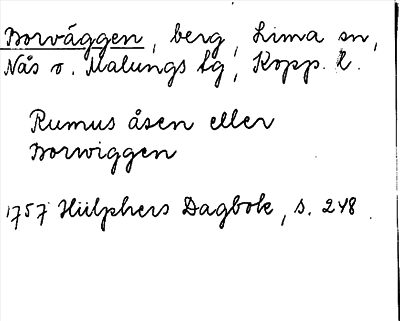 Borväggen, berg, Lima sn,
Nås o. Malungs tg, Kopp. l.
Rumus åsen eller
Borwiggen
1757 Hülphers Dagbok, s. 248.